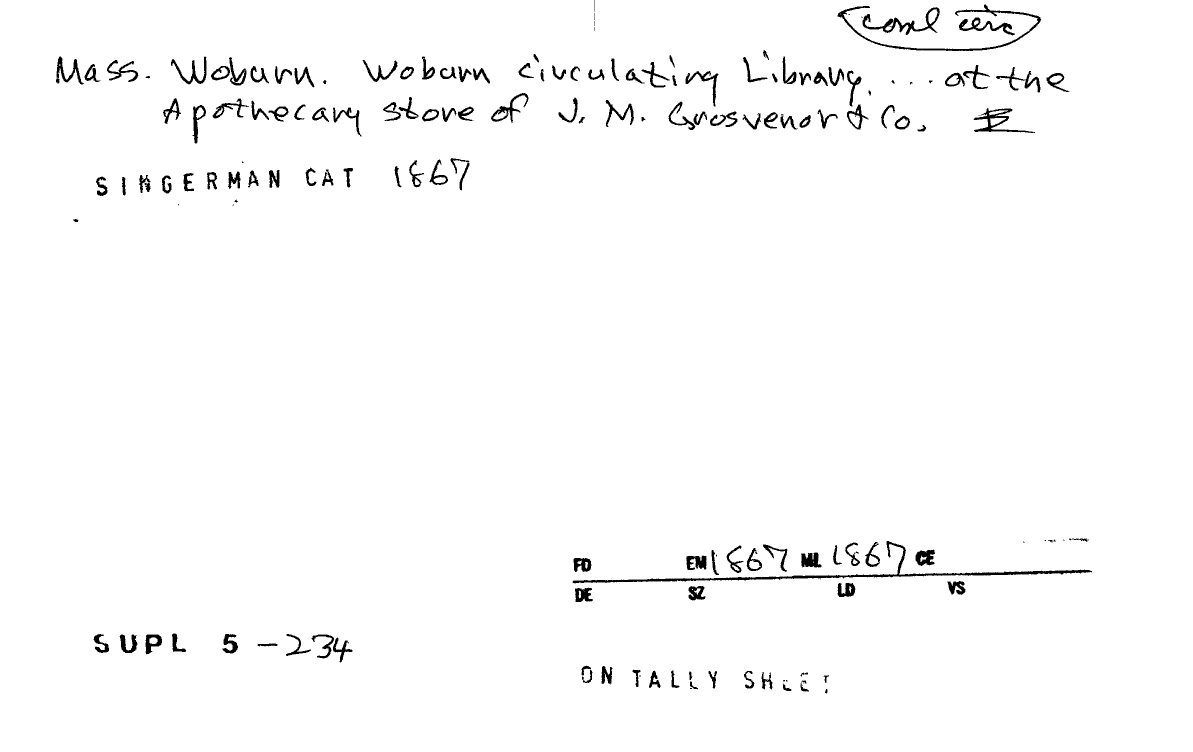 coml circ
Mass. Woburn. Woburn Circulating Library. ... at the
Apothecary store of J. M. Grosvenor & Co.
SINGERMAN CAT 1867
FD EM 1867 ML 1867 CE
DE SZ LD VS
SUPL 5 - 234
ON TALLY SHEET